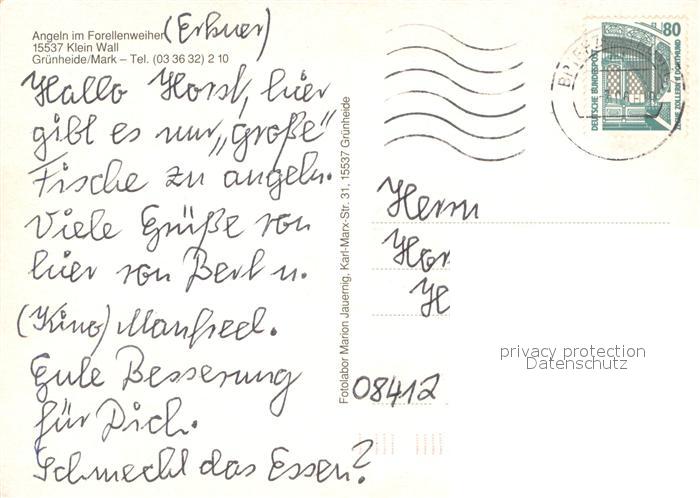 Angeln im Forellenweiher (Erkner)
15537 Klein Wall
Grünheide/Mark – Tel. (03 36 32) 2 10
Hallo Horst, hier
gibt es nur „große“
Fische zu angeln.
Viele Grüße von
hier von Bert u.
(Kino) Manfred.
Gute Besserung
für Dich.
Schmeckt das Essen?
Fotolabor Marion Jauernig, Karl-Marx-Str. 31, 15537 Grünheide
80
DEUTSCHE BUNDESPOST
ZECHE ZOLLERN II DORTMUND
Herrn
Hor
H
08412
privacy protection
Datenschutz